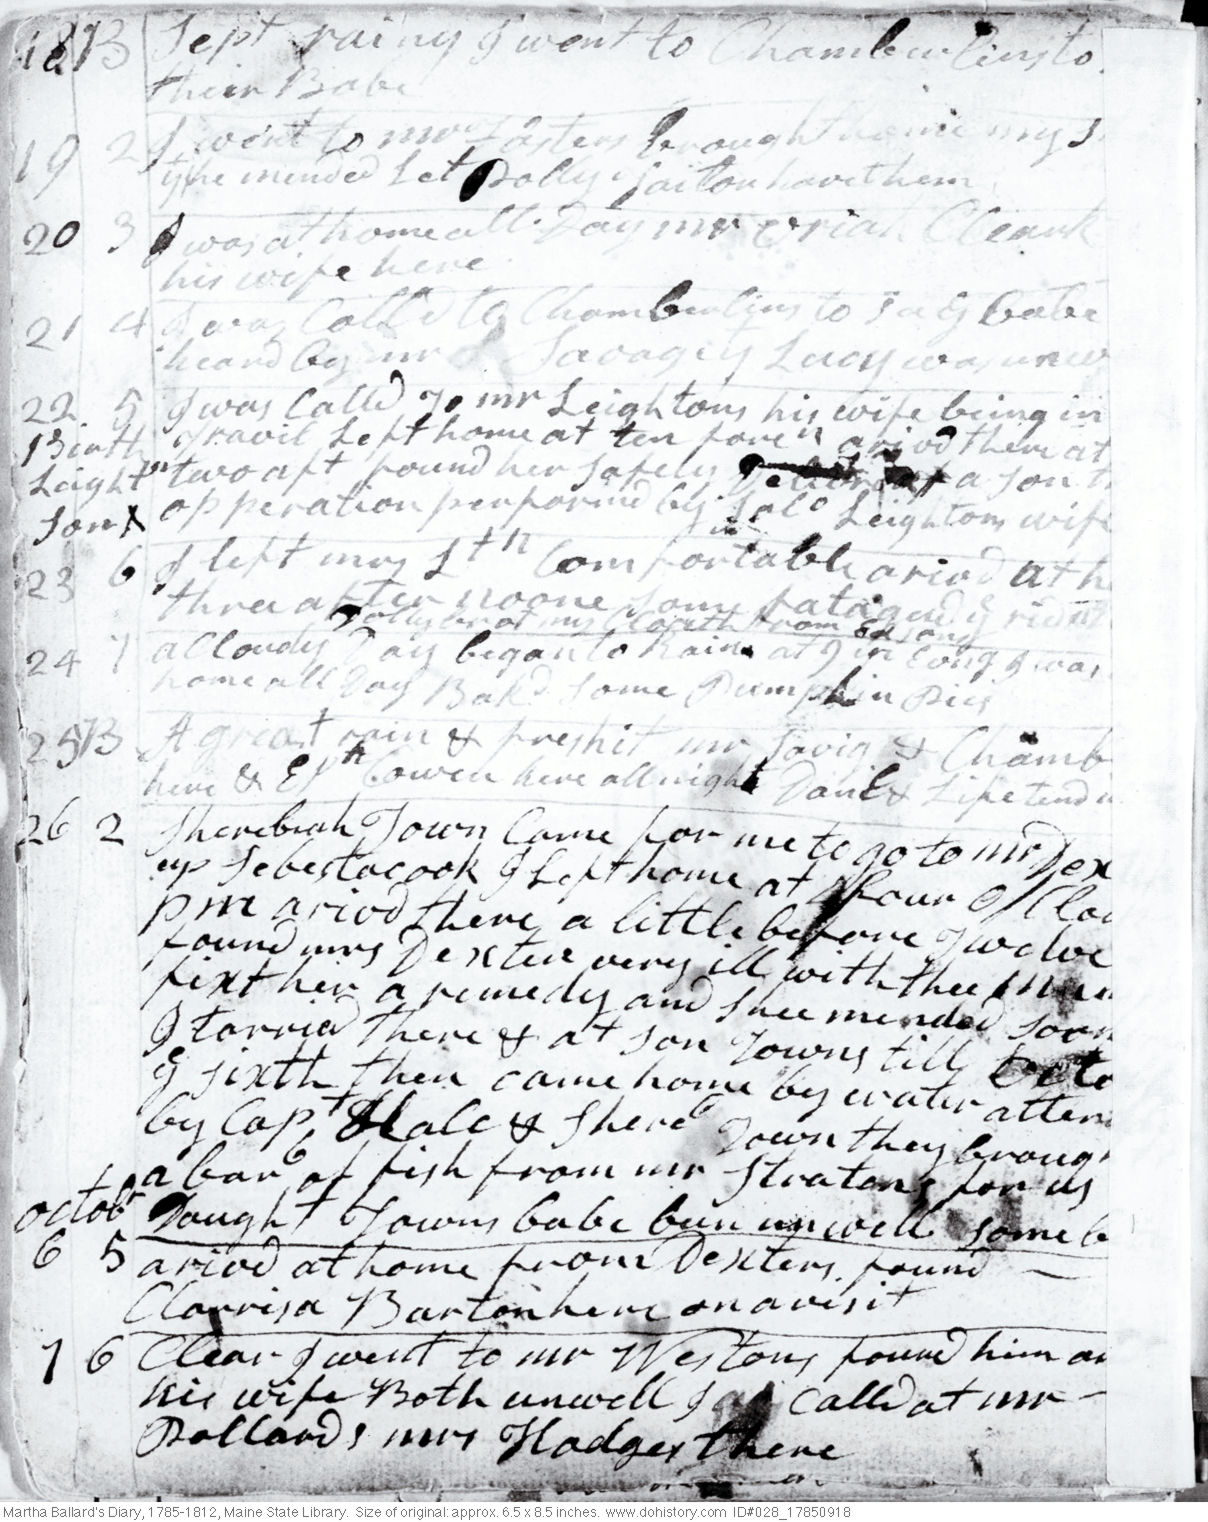 18 B Sept rainy I went to Chamberlins to
their Babe
19 2 I went to mrs Fosters brought home my
ye mended Let Polly have them
20 3 I was at home all Day mr Cleark
his wife here
21 4 I was Calld to Chamberlins to babe
heard by mr Savage Lucy was unw
22 5 I was Calld to mr Leightons his wife being in
Birth travil Left home at ten foren arivd there at
Leightn two aft found her safely a son
Son X opperation performd by Leightons wife
23 6 I left mrs Ltn Comfortable arivd at h
three after noone some fatagud
Polly brot my Cloath from
24 7 a Cloudy Day began to Rain at 9 in Eevng I was
home all Day Bakd some Pumpkin Pies
25 B A great rain & freshit mr Savig & Chamb
here & Epm Cowen here all night Danl &
26 2 Sherebiah Town Came for me to go to mr Dex
up Sebestocook I Left home at four O Cloc
pm arivd there a little before Twelve
found mrs Dexter very ill with thee
fixt her a remedy and shee mended soon
I tarried there & at son Towns till Octo
ye sixth then came home by water atten
by Capt Hale & Shereb Town they broug
a barl of fish from mr Stratons for us
Octobr Daught Towns babe been unwell some b
6 5 arivd at home from Dexters found
Clarrisa Barton here on a visit
7 6 Clear I went to mr Westons found him an
his wife Both unwell I Calld at mr
Pollards mrs Hodges there
Martha Ballard's Diary, 1785-1812, Maine State Library. Size of original: approx. 6.5 x 8.5 inches. www.dohistory.com ID#028_17850918